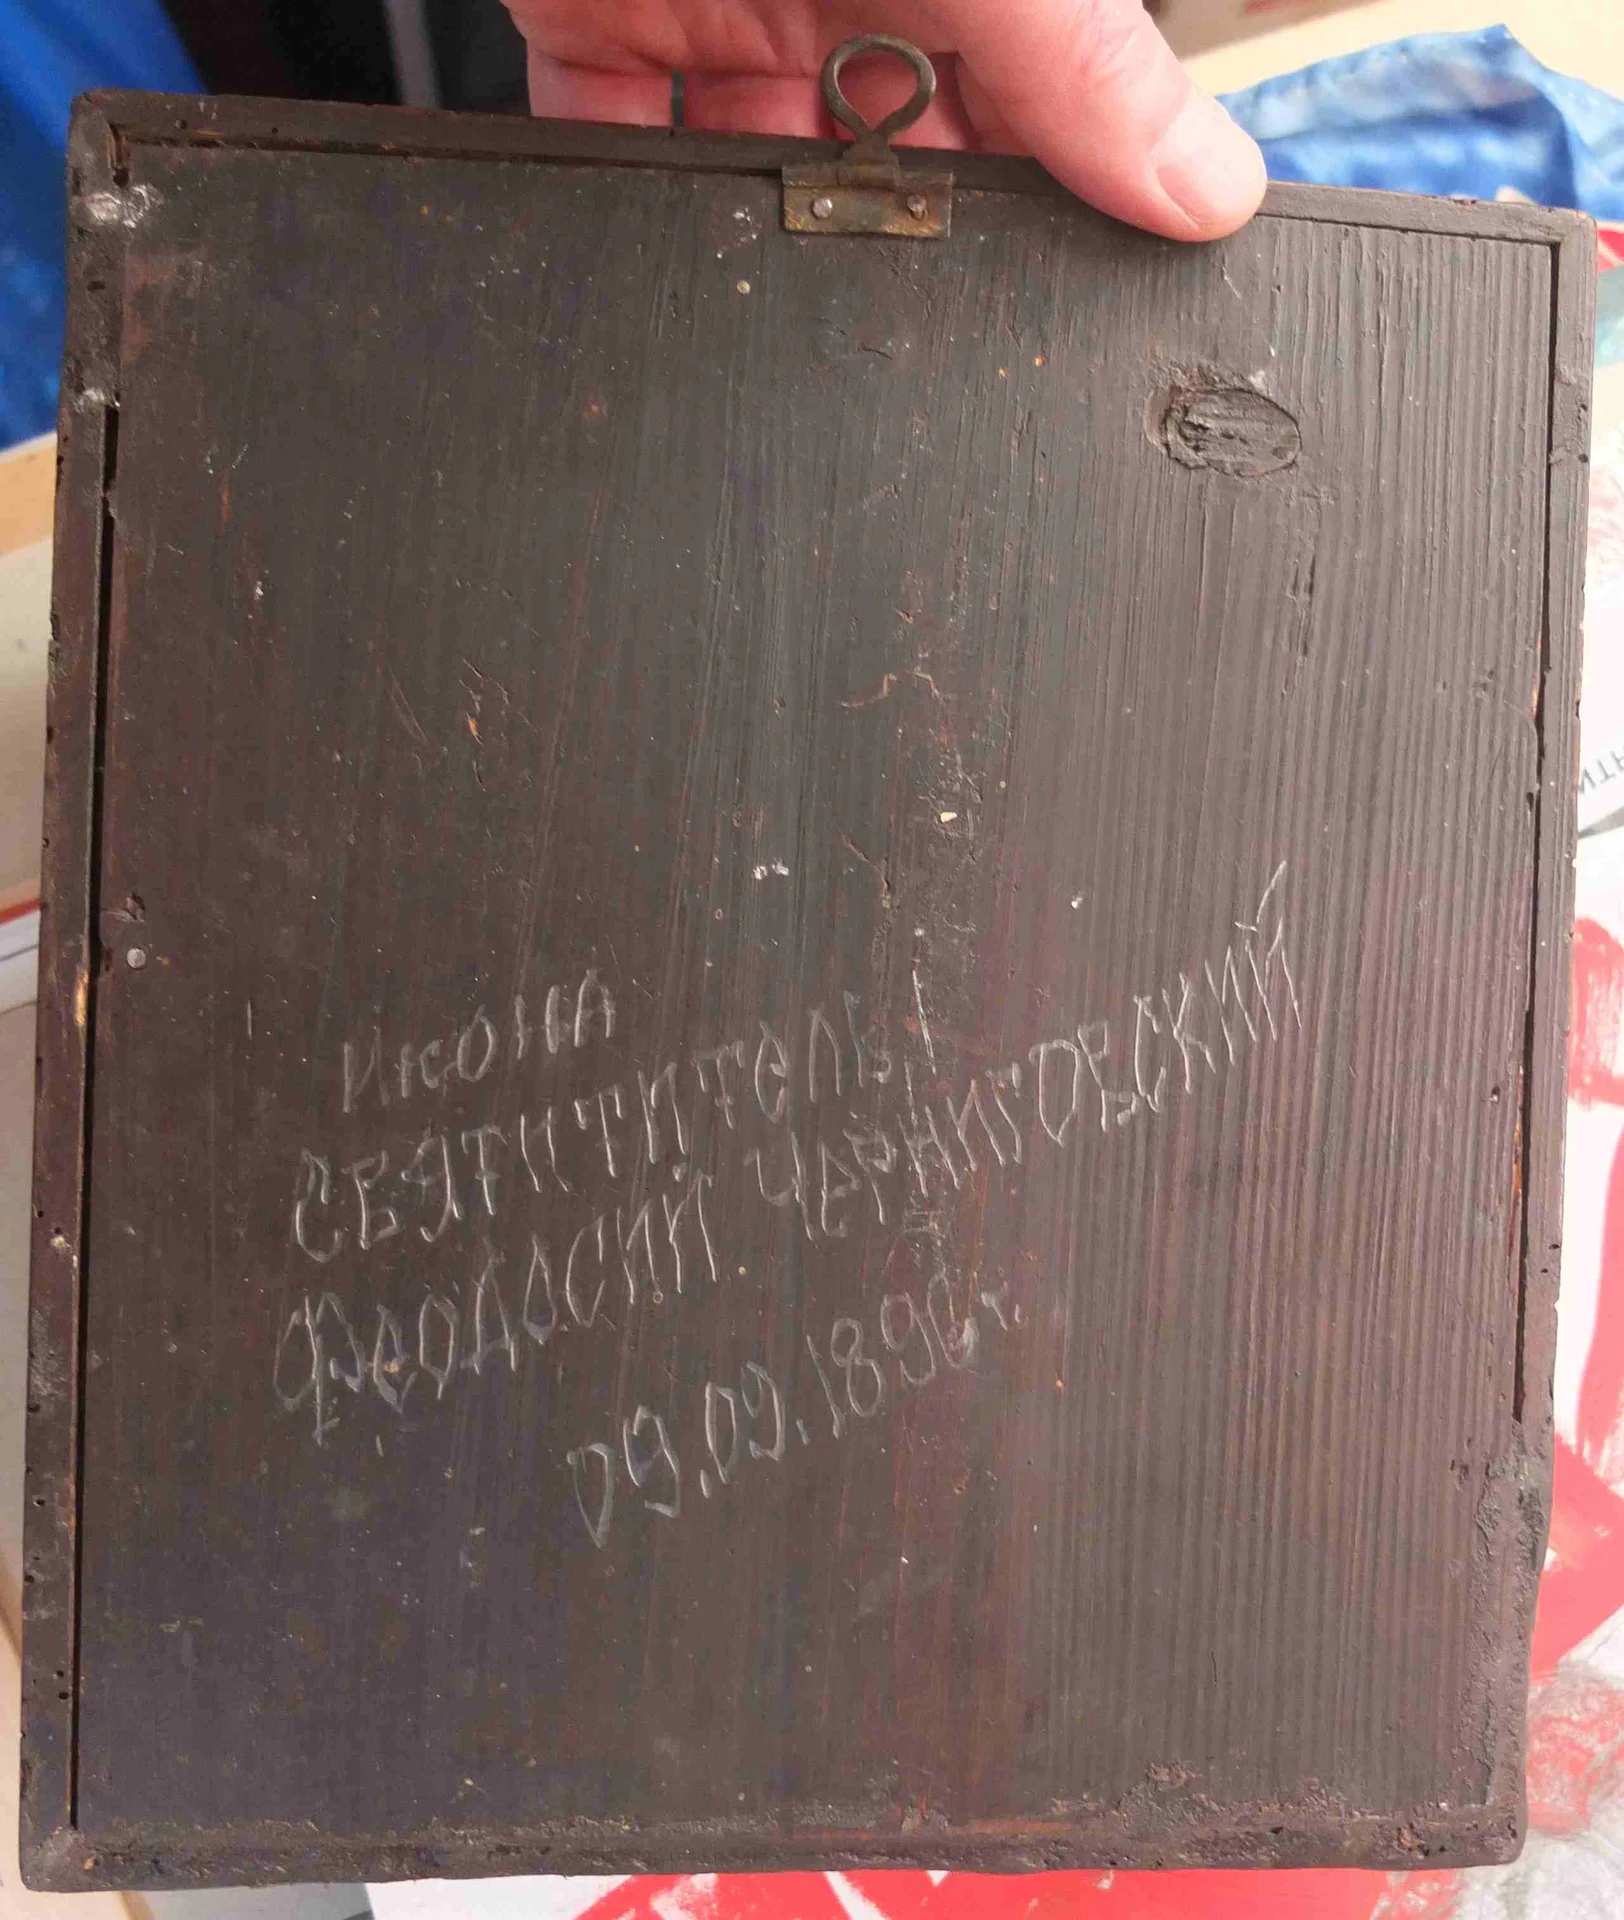 Икона
СВЯТИТЕЛЬ
ФЕОДОСИЙ ЧЕРНИГОВСКИЙ
09.09.1896 г.